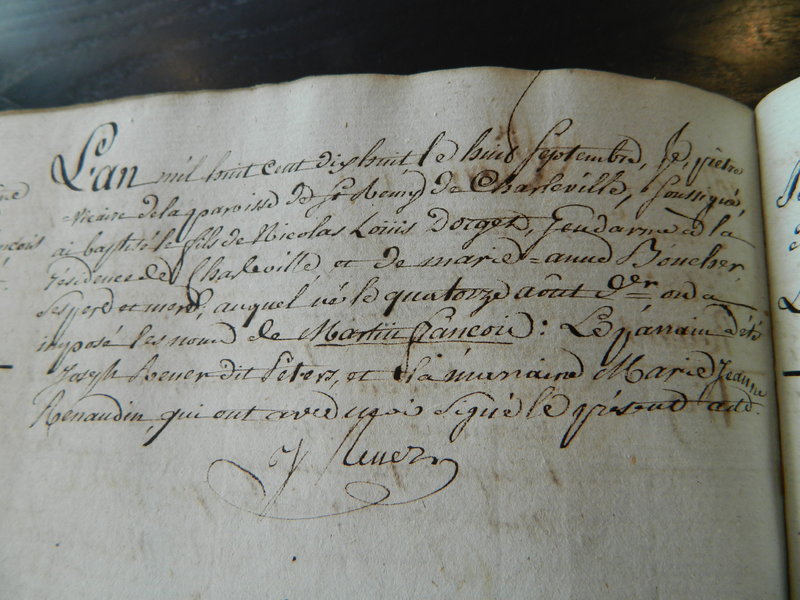 L'an mil huit cent dix huit le huit Septembre, Je prêtre
=vicaire de la paroisse de St Remy de Charleville, soussigné,
ai baptisé le fils de Nicolas Louis Dorget, Gendarme à la
résidence de Charleville et de marie=anne Boucher
ses perd et merd, auquel né le quatorze août Der on a
imposé les noms de Martin François : Le parain a été
Joseph Rever dit Péters, et la maraine Marie Jeanne
Renaudin, qui ont avec moi signé le présent acte.
J Rever
ançois